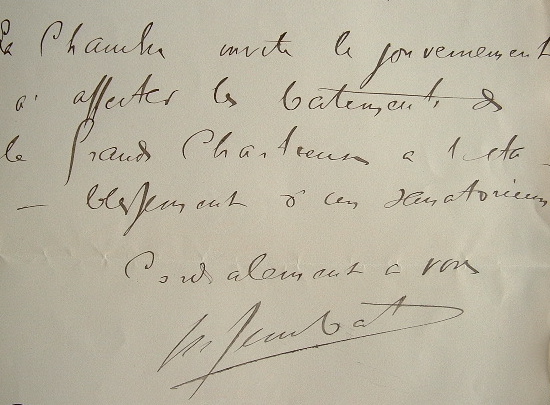 La Chambre invite le gouvernement
à affecter les batiments de
la Grande Chartreuse a l'éta-
- blissement d'un sanatorium
Cordialement a vous
M Sembat